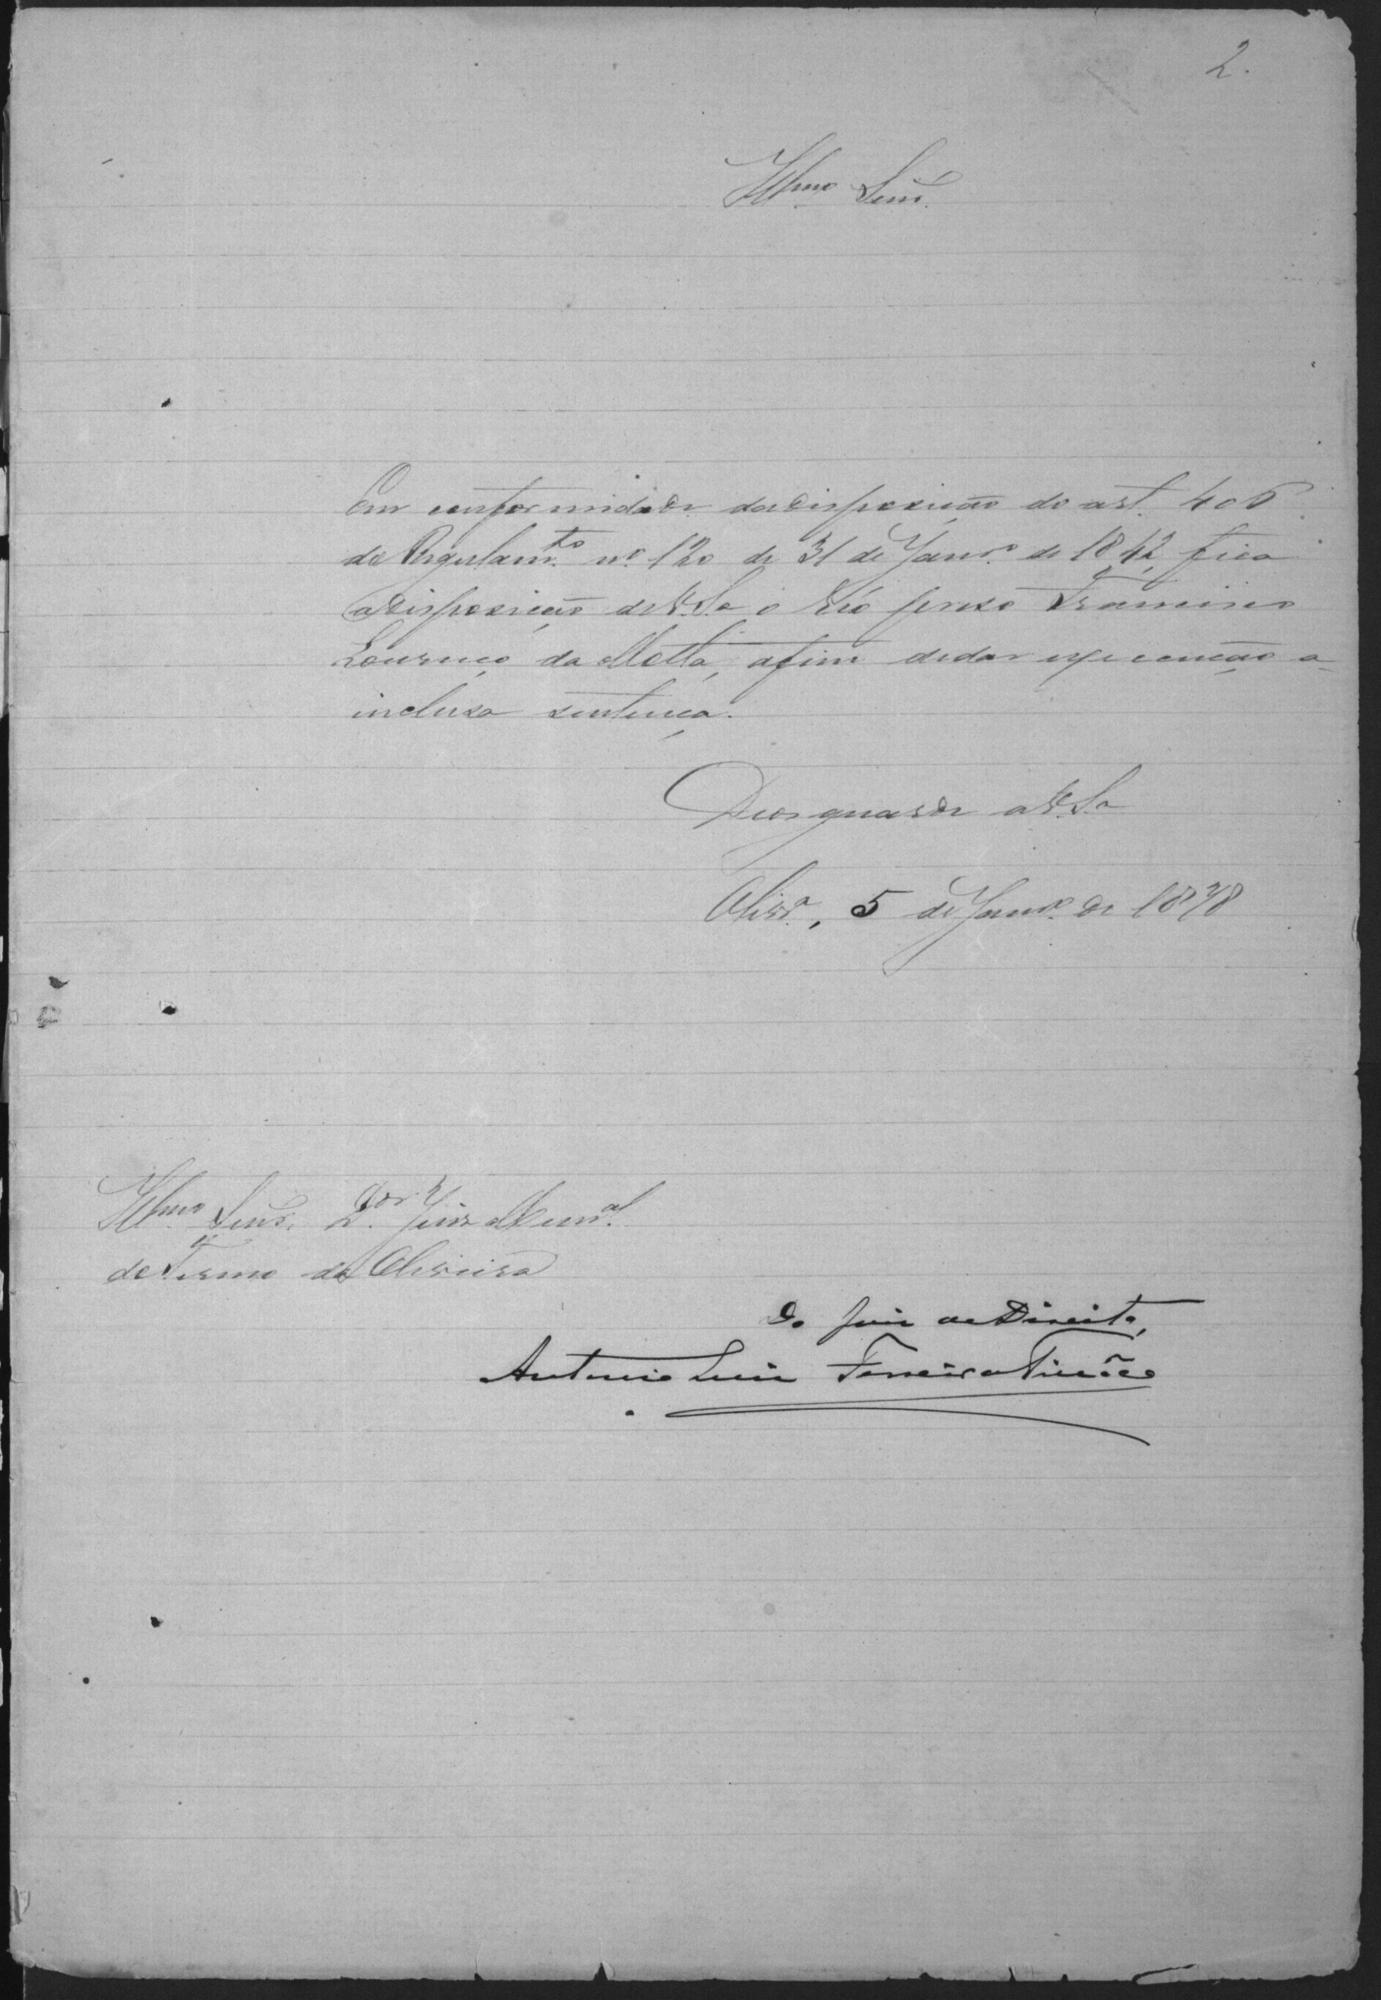 2.
Illmo. Senr.
Em conformidade da disposição do art. 406
do Regulamto. nº 120 de 31 de Janro. de 1842, fica
a disposição de V. Sa o réo preso Francisco
Lourenço da Motta, afim de dar execução a
inclusa sentença.
Deos guarde a V. Sa
Olivra., 5 de Janro. de 1878
Illmo. Senr. Dor. Juiz Munal.
do Termo da Oliveira
O Juiz de Direito,
Antonio Luiz Ferreira Tinôco